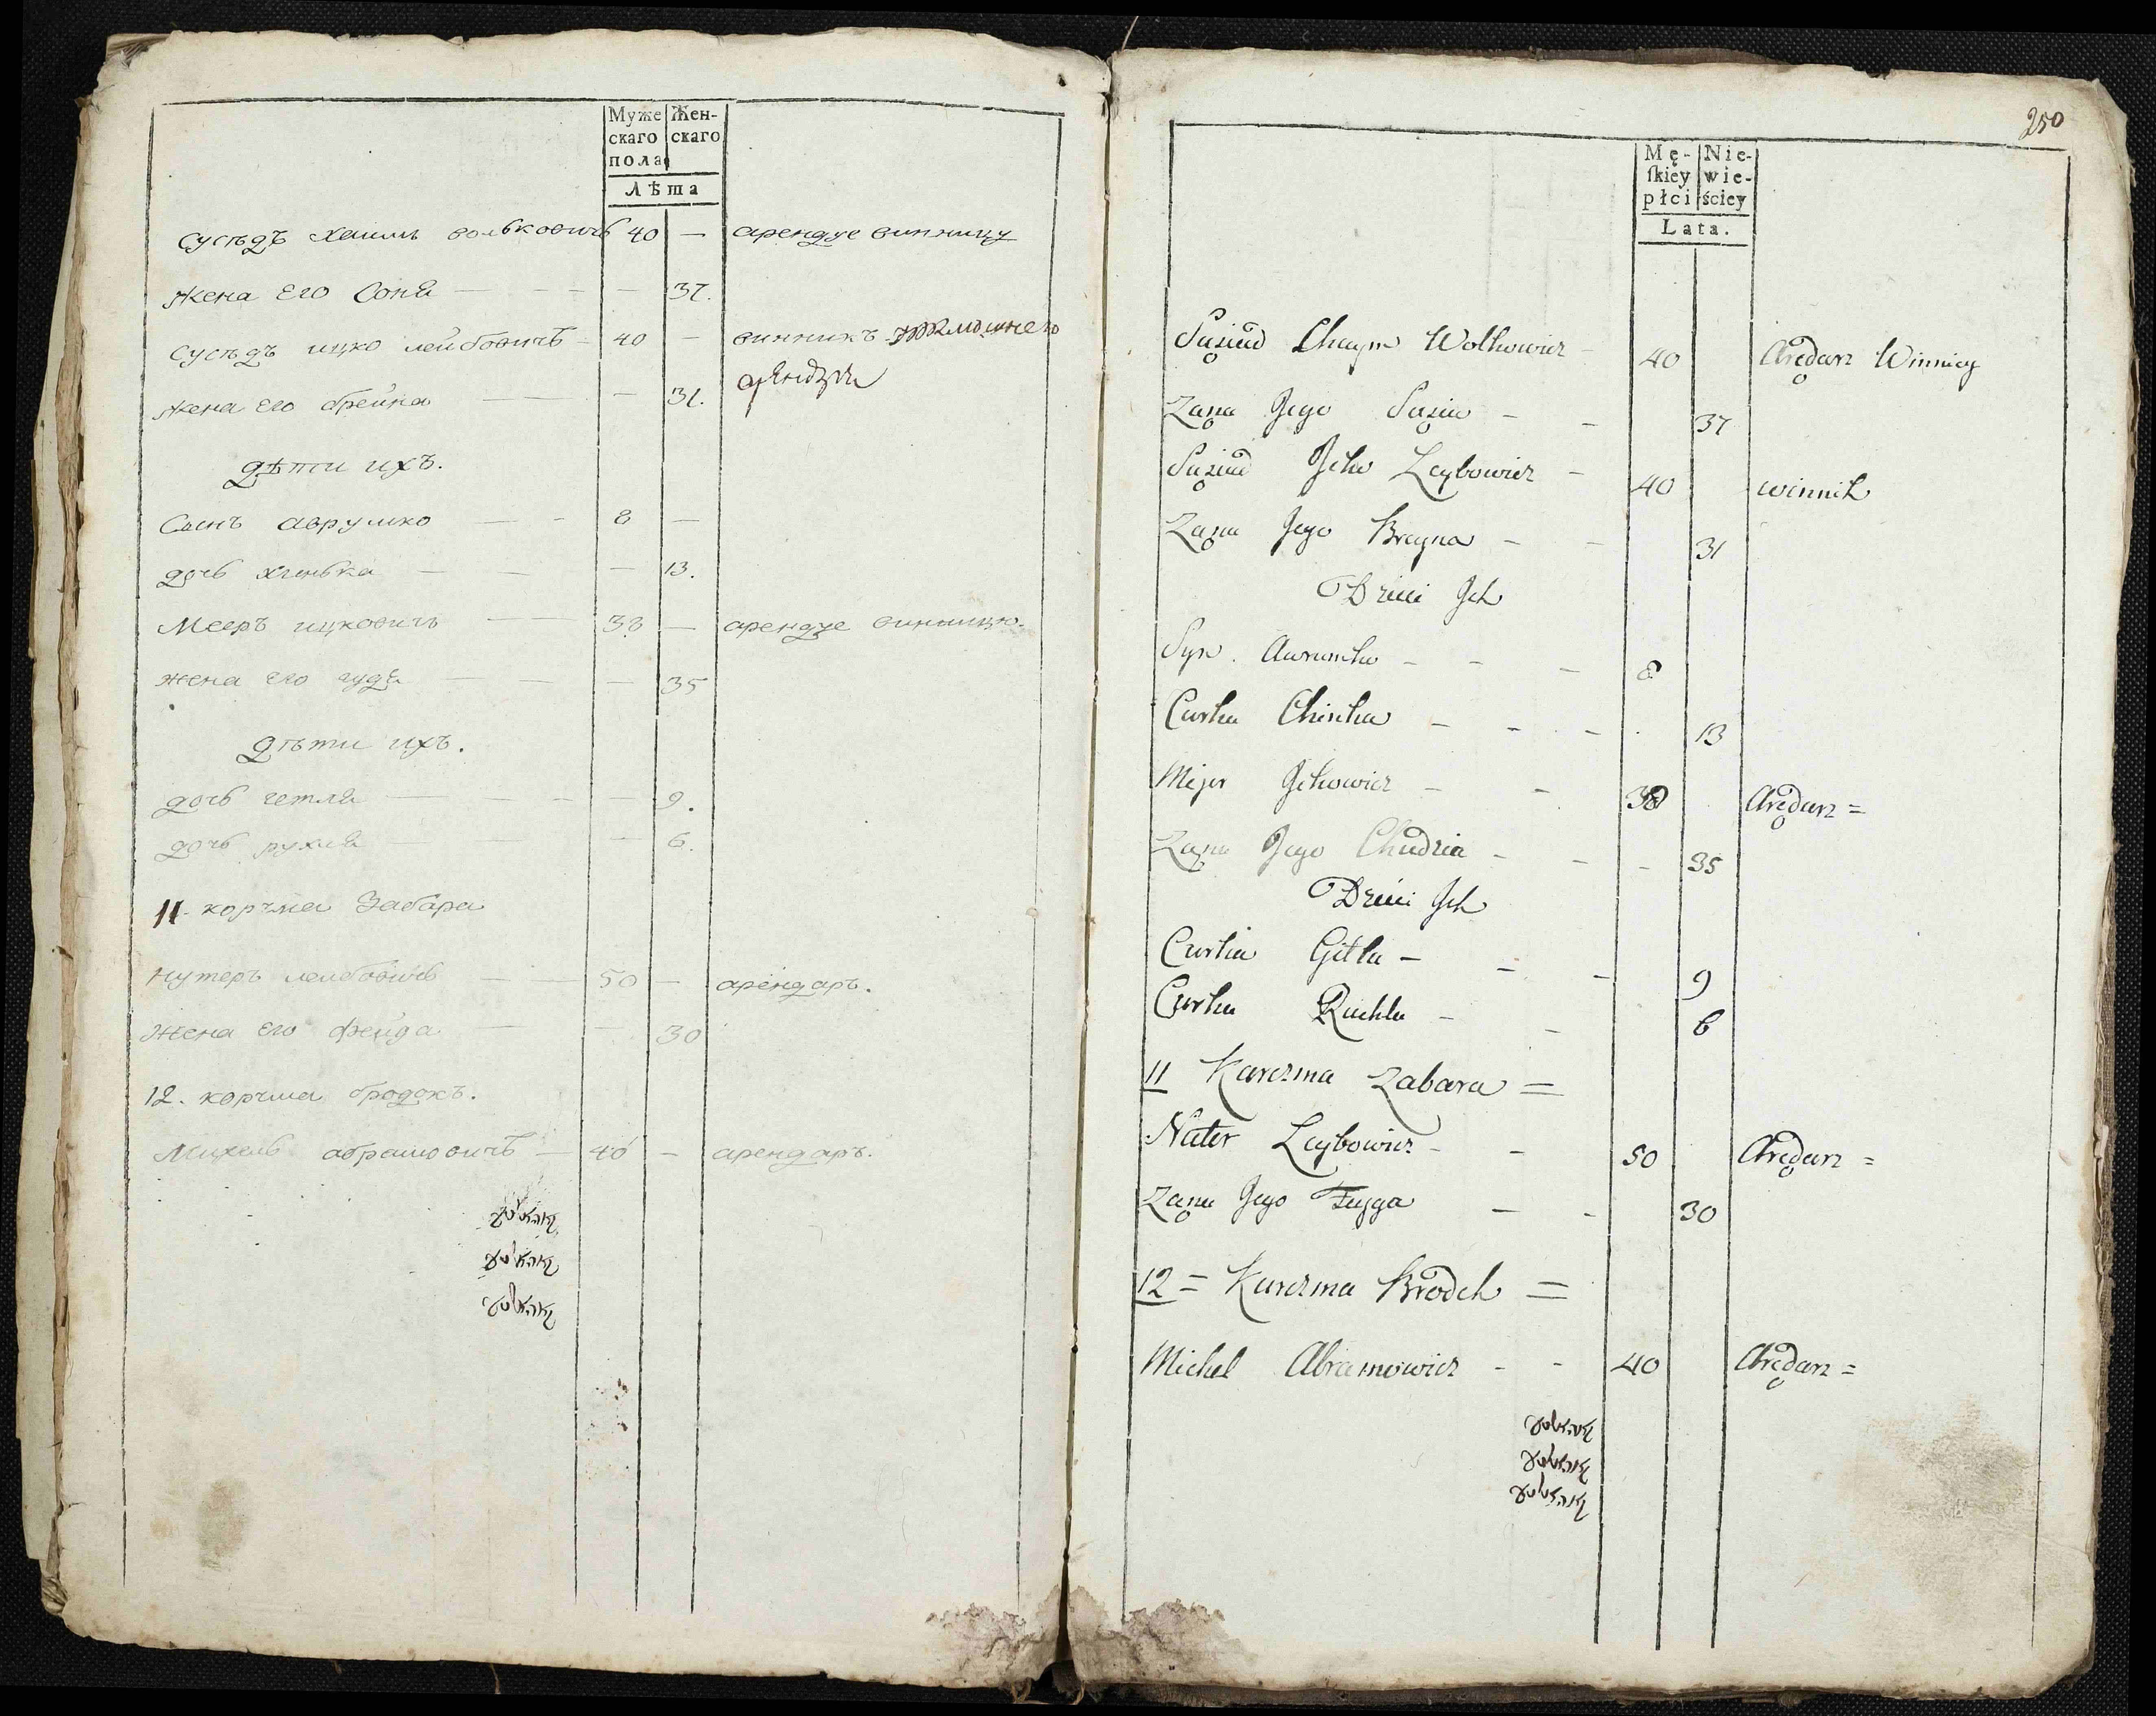 Муже Жен-
скаго скаго
пола
Лѣта
Сусѣдъ хаимъ волковичъ 40 — арендуе винницу
Жена Его Соня — — — — 37.
Сусѣдъ ицко лейбовичъ — 40 — винникъ
Жена Его брейна — — — 31.
дѣти ихъ.
Сынъ аврумко — — 8 —
дочь хинька — — — 13.
Мееръ ицковичъ — — 38 — арендуе винницю.
жена Его худя — — — 35
дѣти ихъ.
дочь гетля — — — — 9.
дочь рухля — — — 6.
11. корчма Забара
нутеръ лейбовичъ — — 50 — арендаръ.
Жена Его фейга — 30
12. корчма бродокъ.
Михель абрамовичъ — 40 — арендаръ.
250
Mę- Nie-
ſkiey wie-
płci ściey
Lata.
Sąsiad Chaym Wolkowicz — 40 Arędarz Winnicy
Żąna Jego Sąnia — — 37
Sąsiad Jcko Leybowicz — 40 winnik
Żąna Jego Breyna — — 31
Dzieci Jch
Syn. Awrumko — — — 8
Curka Chinka — — — 13
Mejer Jckowicz — — 38 Arędarz =
Żąna Jego Chudzia — — — 35
Dzieci Jch
Curka Gitla — — — 9
Curka Ruchla — — 6
11 Karczma Zabara =
Nuter Leybowicz — — 50 Arędarz =
Żąna Jego Fejga — — 30
12 = Karczma Brodek =
Michel Abramowicz — — 40 Arędarz =